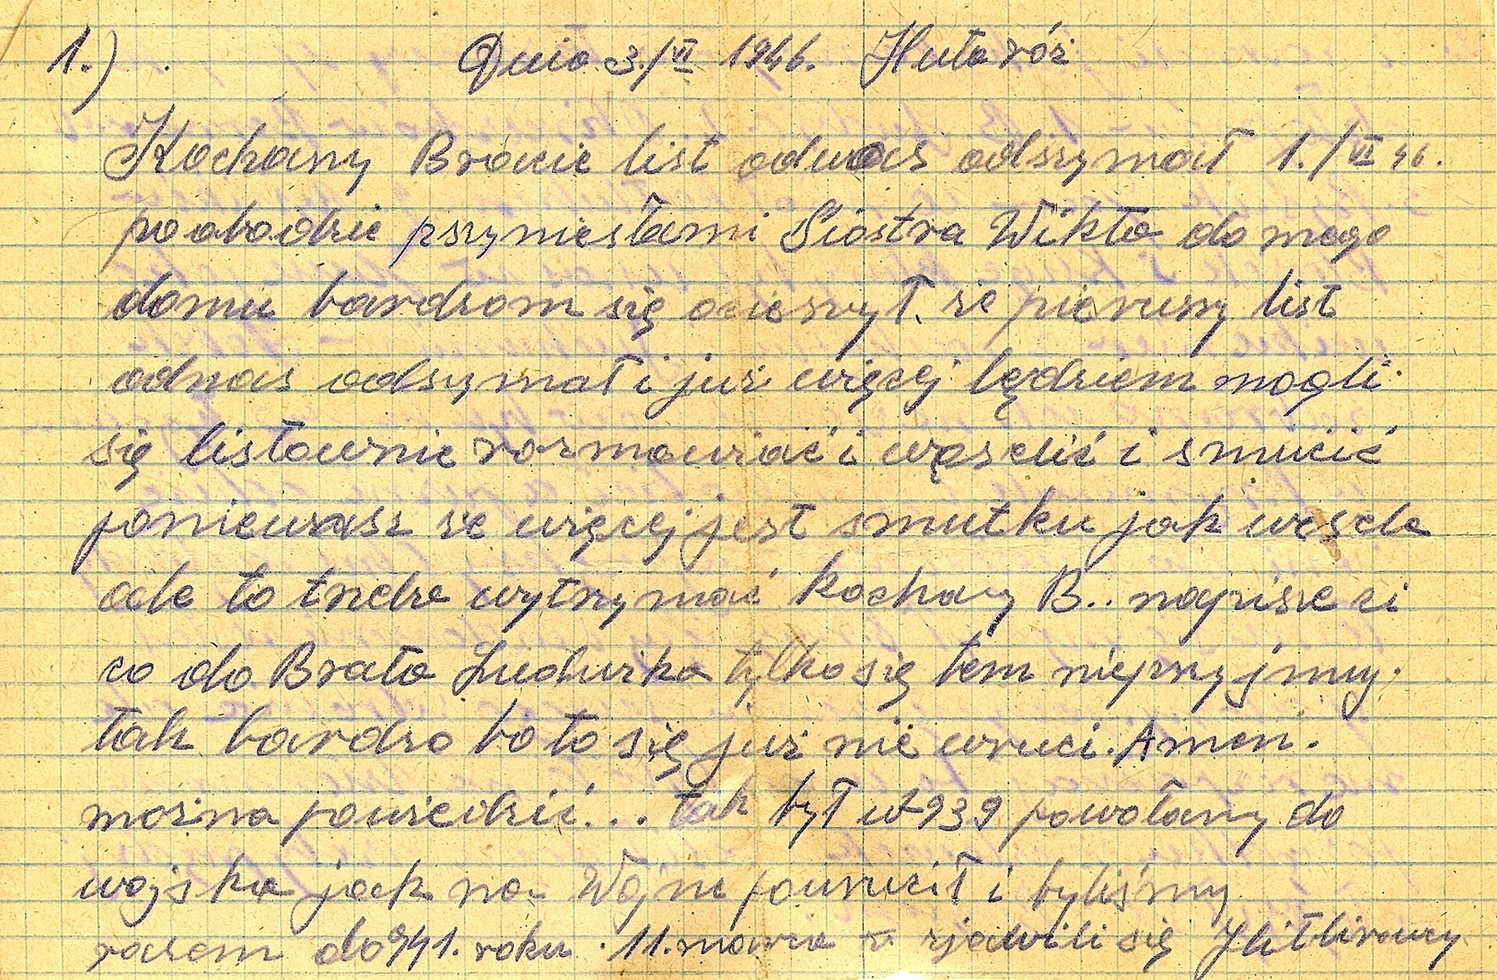 1.) Dnia 3./VI 1946. Huta róż
Kochany Bracie list odwas odszymał 1./VI 46.
po obiodzie pszyniesłami Siostra Wikta do mego
domu bardzom się ucieszył. że pierwszy list
odwas odszymał i już więcej będziem mogli
się listownie rozmawiać i węselić i smucić
ponieważ że więcej jest smutku jak wesela
ale to trzeba wytrzymać kochany B.. napisze ci
co do Brata Ludwika tylko się tem nieprzyjmuj.
tak bardzo bo to się już nie wruci. Amen.
można powiedzić... tak był w 939 powołany do
wojska jack na Wojne powrucił i byliśmy
razem do 941. roku. 11. marca zjawili się Hitlirowcy